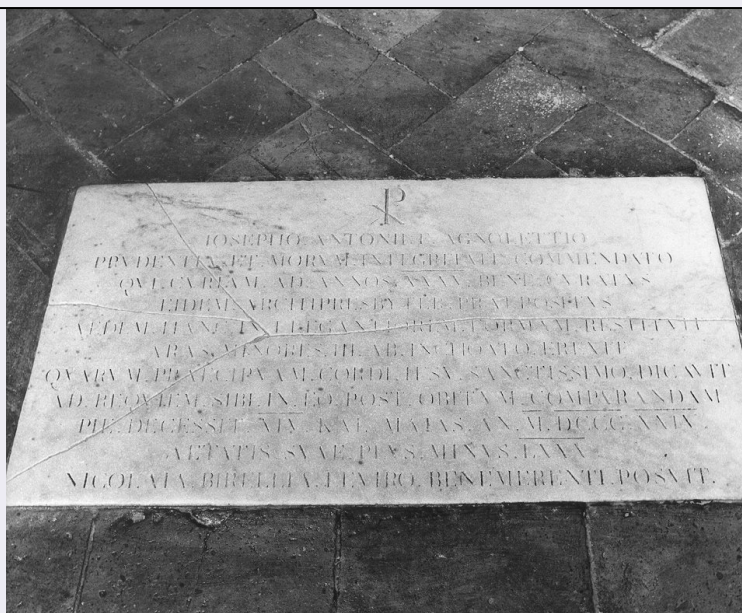 IOSEPHO. ANTONII. F. AGNOLETTIO
PRVDENTIA. ET. MORVM. INTEGRITATE. COMMENDATO
QVI. CVRIAM. AD. ANNOS. XXXV. BENE. CVRATAS
EIDEM. ARCHIPRESBYTER. PRAEPOSITVS
AEDEM. HANC. IN. ELEGANTIOREM. FORMAM. RESTITVIT
ARAS. MINORES. III. AB. INCHOATO. EREXIT
QVARVM. PRAECIPVAM. CORDI. IESV. SANCTISSIMO. DICAVIT
AD. REQVIEM. SIBI. IN. EO. POST. OBITVM. COMPARANDAM
PIE. DECESSIT. XIV. KAL. MAIAS. AN. M.DCCC.XXIX.
AETATIS. SVAE. PLVS. MINVS. LXXX
NICOLAIA. BIRELLIA. BENEMERENTI. POSVIT.